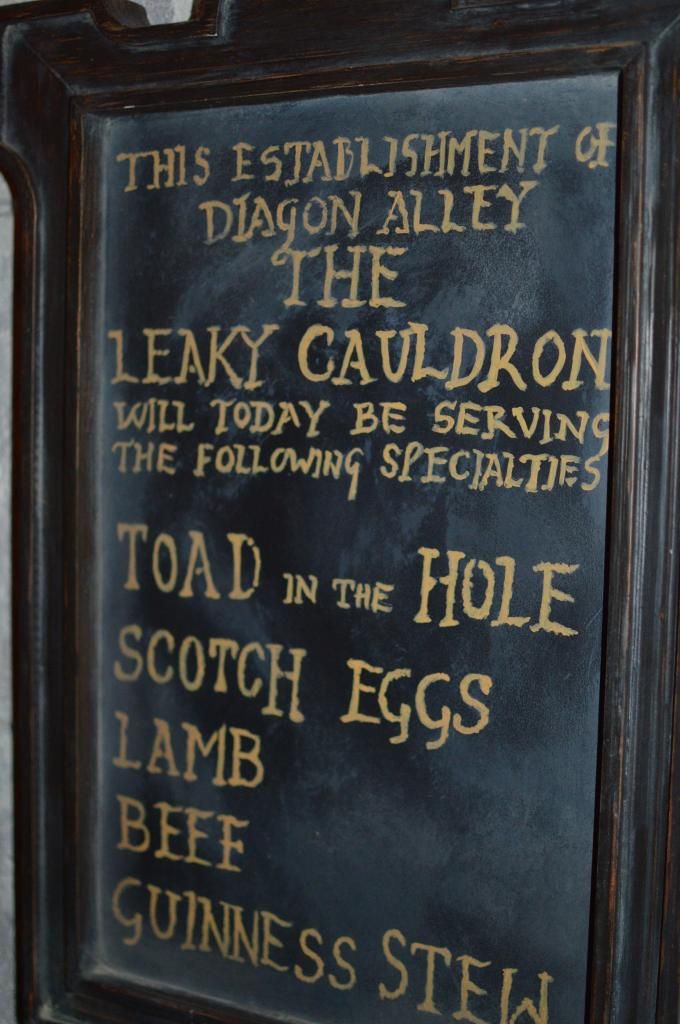 THIS ESTABLISHMENT OF
DIAGON ALLEY
THE
LEAKY CAULDRON
WILL TODAY BE SERVING
THE FOLLOWING SPECIALTIES
TOAD IN THE HOLE
SCOTCH EGGS
LAMB
BEEF
GUINNESS STEW